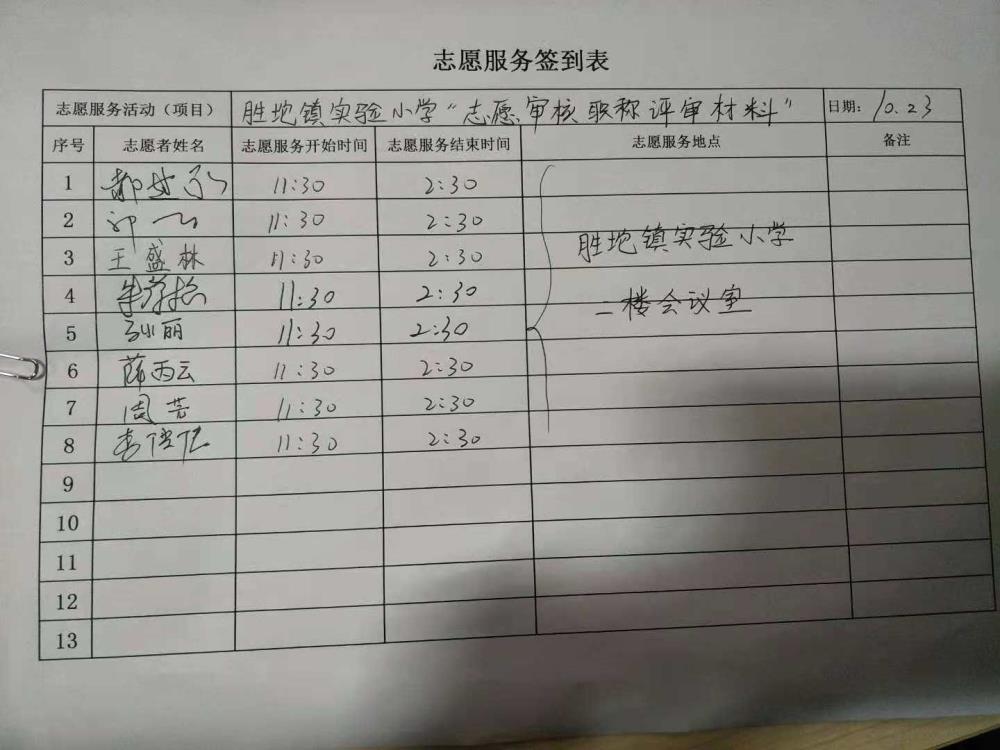 志愿服务签到表
志愿服务活动（项目） 胜坨镇实验小学“志愿审核职称评审材料” 日期： 10.23
序号 志愿者姓名 志愿服务开始时间 志愿服务结束时间 志愿服务地点 备注
1 11:30 2:30
2 11:30 2:30
3 王盛林 11:30 2:30
胜坨镇实验小学
4 11:30 2:30
二楼会议室
5 孙小丽 11:30 2:30
6 薛丙云 11:30 2:30
7 周芸 11:30 2:30
8 11:30 2:30
9
10
11
12
13